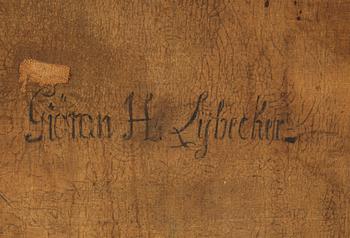 Giöran H: Lÿbecker